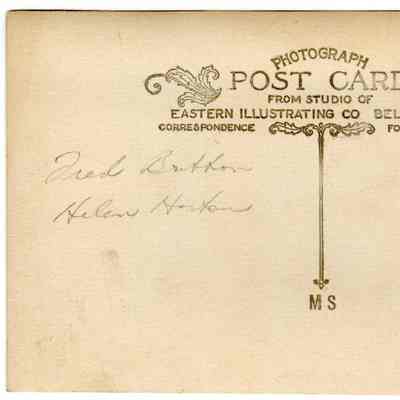 PHOTOGRAPH
POST CARD
FROM STUDIO OF
EASTERN ILLUSTRATING CO BEL
CORRESPONDENCE FO
Fred Britton
Helen
MS